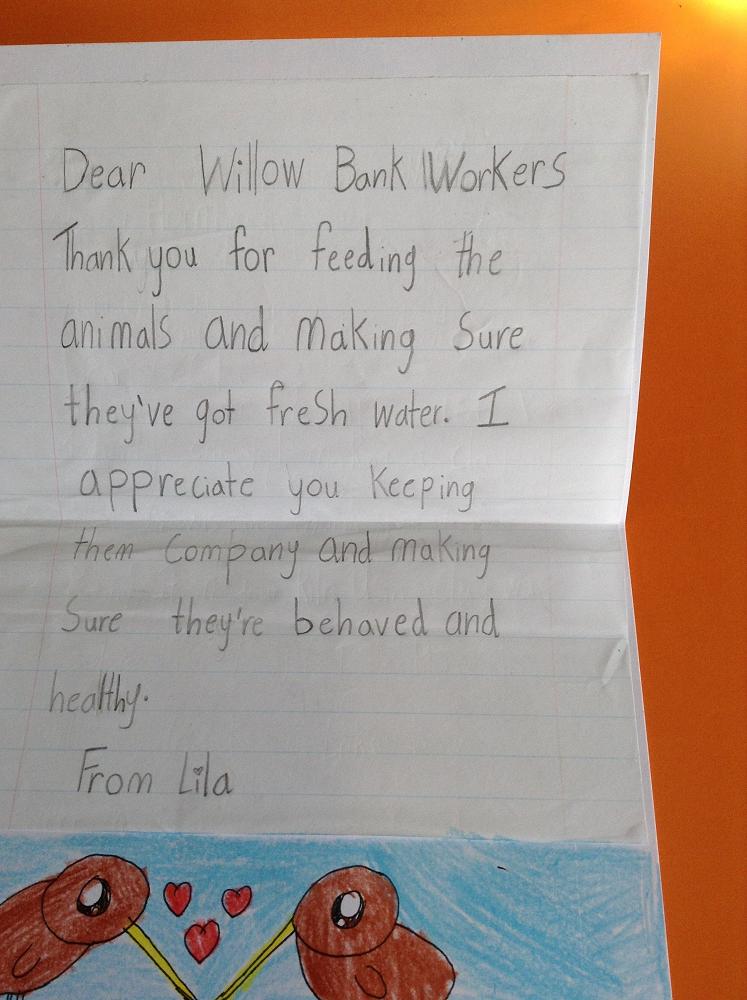 Dear Willow Bank Workers
Thank you for feeding the
animals and making Sure
they've got freSh water. I
appreciate you Keeping
them Company and making
Sure they're behaved and
healthy.
From Lila